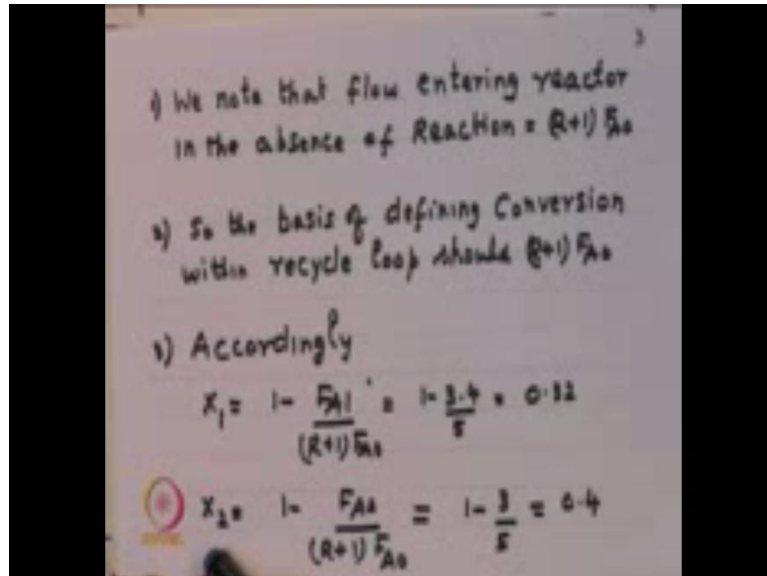 3
1) We note that flow entering reactor
in the absence of Reaction = (R+1) FA0
2) So the basis of defining Conversion
within recycle loop should (R+1) FA0
3) Accordingly
X1 = 1 - FA1 / (R+1) FA0 = 1 - 3.4 / 5 = 0.32
X2 = 1 - FA2 / (R+1) FA0 = 1 - 3 / 5 = 0.4